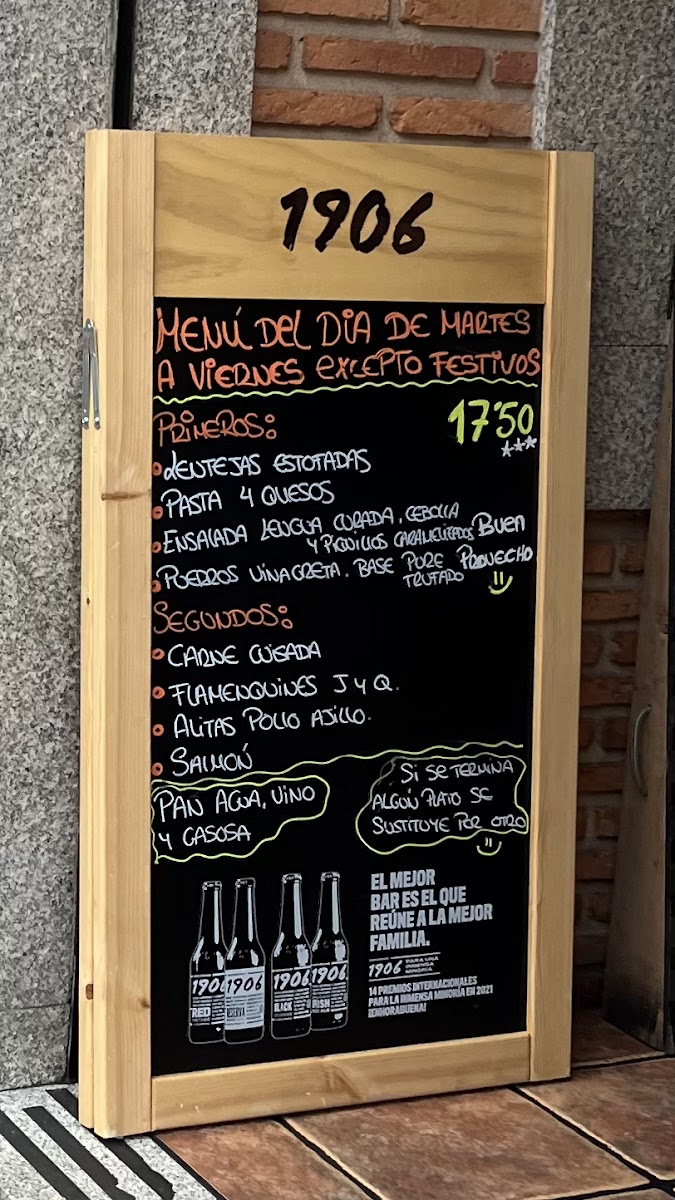 1906
MENÚ DEL DIA DE MARTES
A VIERNES EXCEPTO FESTIVOS
PRIMEROS:
17'50
***
• LENTEJAS ESTOFADAS
• PASTA 4 QUESOS
• ENSALADA LENGUA CURADA, CEBOLLA
Y PIQUILLOS CARAMELIZADOS
• PUERROS VINAGRETA. BASE PURE
TRUFADO
BUEN
PROVECHO
SEGUNDOS:
• CARNE GUISADA
• FLAMENQUINES J Y Q.
• ALITAS POLLO AJILLO.
• SALMÓN
PAN AGUA, VINO
Y GASOSA
SI SE TERMINA
ALGÚN PLATO SE
SUSTITUYE POR OTRO
EL MEJOR
BAR ES EL QUE
REÚNE A LA MEJOR
FAMILIA.
1906 PARA UNA
INMENSA
MINORÍA
14 PREMIOS INTERNACIONALES
PARA LA INMENSA MINORÍA EN 2021
¡ENHORABUENA!
1906
RED
1906
1906
BLACK
1906
IRISH